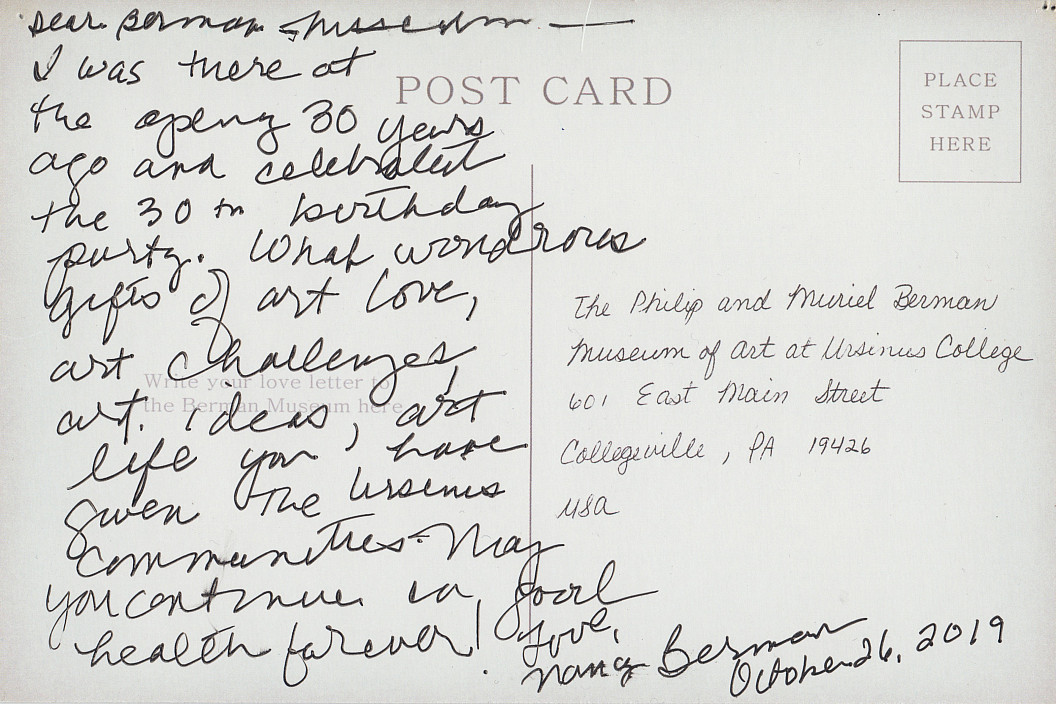 Dear Berman Museum —
I was there at
the opening 30 years
ago and celebrated
the 30th birthday
party. What wondrous
gifts of art love,
art challenges,
art ideas, art
life you have
given the Ursinus
communities. May
you continue in good
health forever!
Love,
Nancy Berman
October 26, 2019
POST CARD
PLACE
STAMP
HERE
Write your love letter to
the Berman Museum here
The Philip and Muriel Berman
Museum of Art at Ursinus College
601 East Main Street
Collegeville, PA 19426
USA